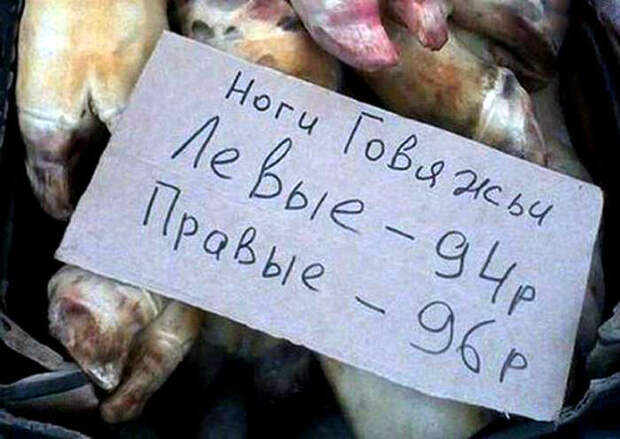 Ноги Говяжьи
Левые - 94р
Правые - 96р